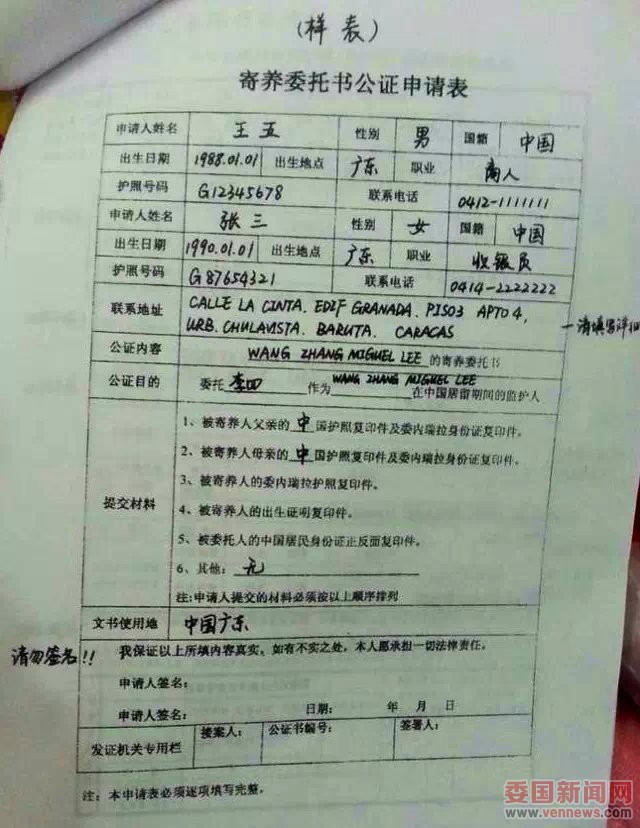 （样表）
寄养委托书公证申请表
申请人姓名 王五 性别 男 国籍 中国
出生日期 1988.01.01 出生地点 广东 职业 商人
护照号码 G12345678 联系电话 0412-1111111
申请人姓名 张三 性别 女 国籍 中国
出生日期 1990.01.01 出生地点 广东 职业 收银员
护照号码 G87654321 联系电话 0414-2222222
联系地址 CALLE LA CINTA. EDIF GRANADA. PISO3 APTO4,
URB. CHULAVISTA. BARUTA. CARACAS
一请填写详细
公证内容 WANG ZHANG MIGUEL LEE 的寄养委托书
公证目的 委托 李四 作为 WANG ZHANG MIGUEL LEE 在中国居留期间的监护人
提交材料
1、被寄养人父亲的中国护照复印件及委内瑞拉身份证复印件。
2、被寄养人母亲的中国护照复印件及委内瑞拉身份证复印件。
3、被寄养人的委内瑞拉护照复印件。
4、被寄养人的出生证明复印件。
5、被委托人的中国居民身份证正反面复印件。
6、其他：无
注:申请人提交的材料必须按以上顺序排列
文书使用地 中国广东
请勿签名!!
我保证以上所填内容真实。如有不实之处，本人愿承担一切法律责任。
申请人签名：
申请人签名： 日期： 年 月 日
发证机关专用栏 接案人： 公证书编号： 签署人：
注：本申请表必须逐项填写完整。
委国新闻网
www.vennews.com